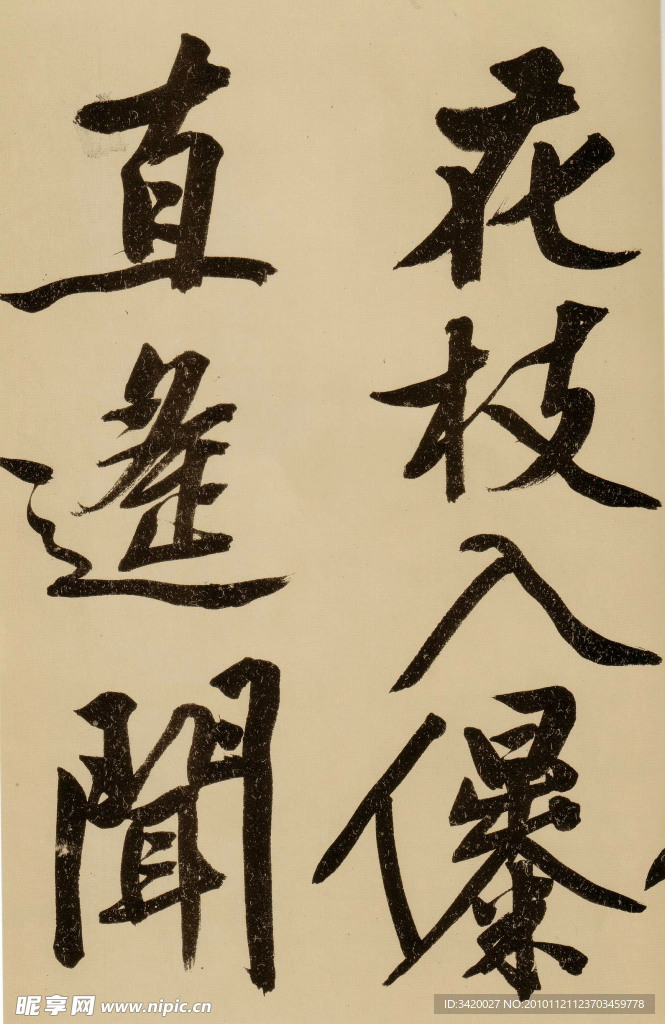 花枝入儤
直邃聞
昵享网 www.nipic.cn
ID:3420027 NO:20101121123703459778